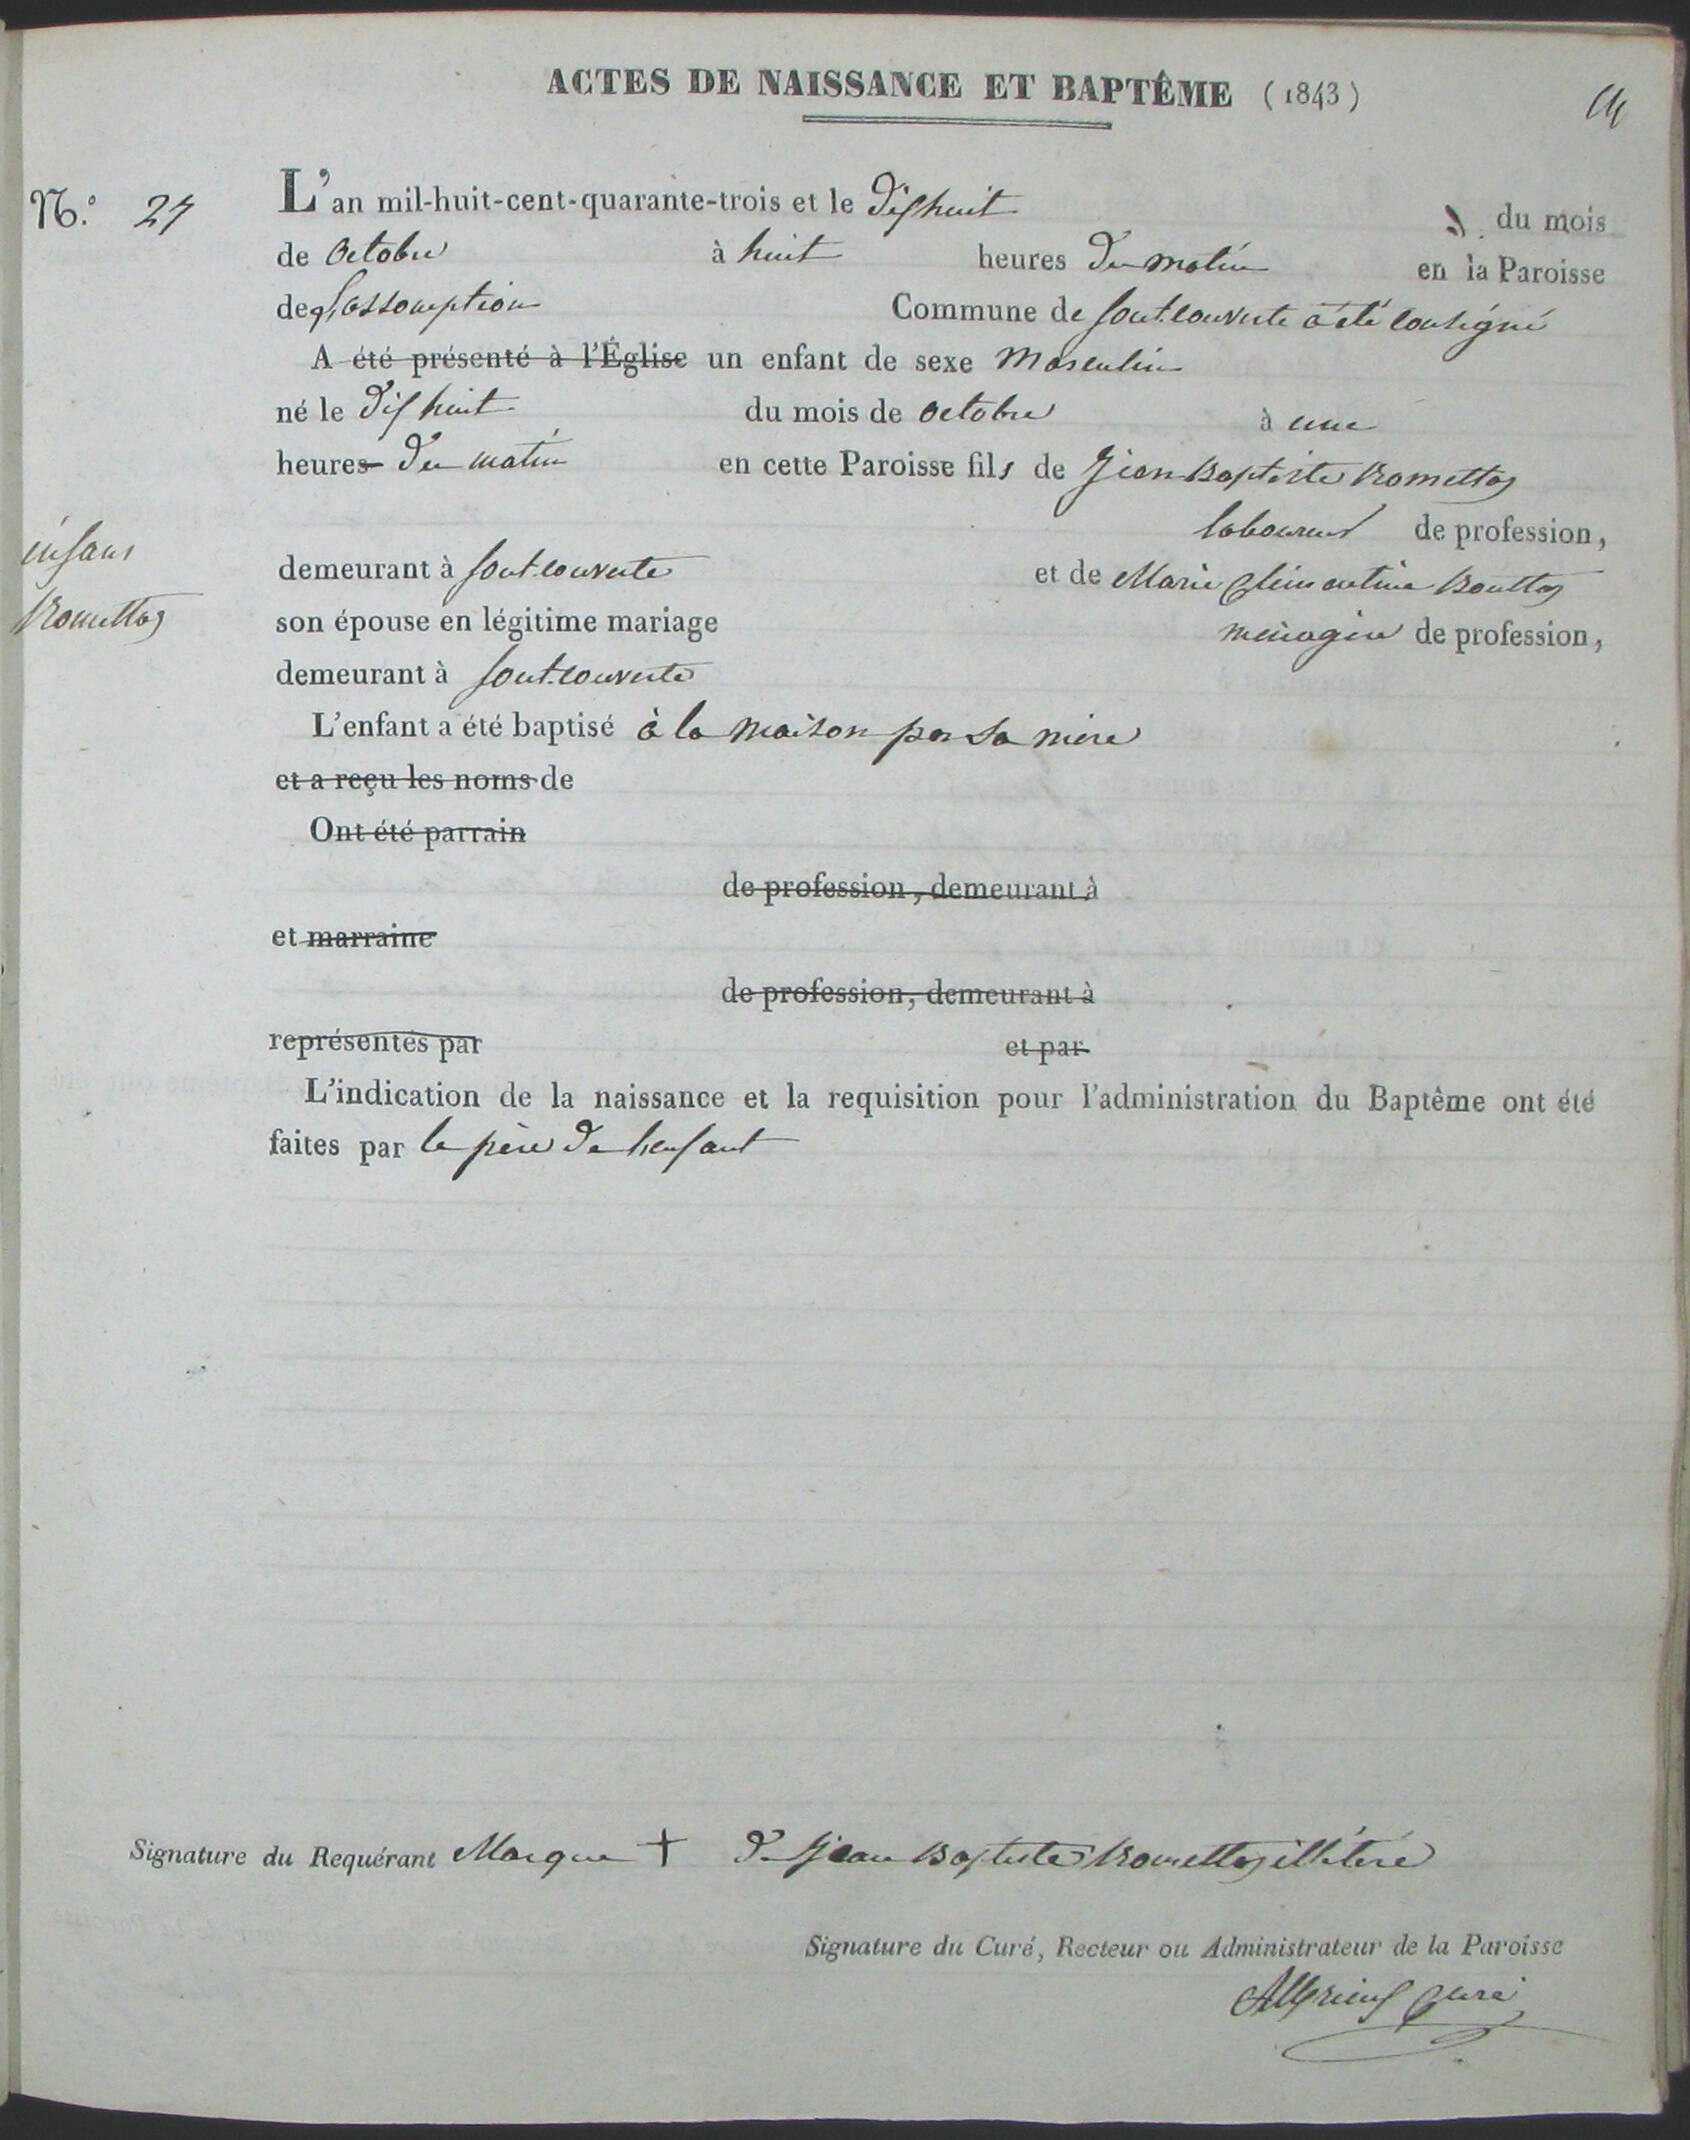 ACTES DE NAISSANCE ET BAPTÊME (1843)
N.º 27
L'an mil-huit-cent-quarante-trois et le dixhuit du mois
de octobre à huit heures du matin en la Paroisse
de l'assomption Commune de font-couverte a été consigné
A été présenté à l'Église un enfant de sexe masculin
né le dix huit du mois de octobre à une
heures du matin en cette Paroisse fils de Jean Baptiste Romettaz
laboureur de profession,
enfant
demeurant à font-couverte et de Marie Clémentine Bouttaz
Romettaz
son épouse en légitime mariage ménagère de profession,
demeurant à font-couverte
L'enfant a été baptisé à la maison par sa mère
et a reçu les noms de
Ont été parrain
de profession, demeurant à
et marraine
de profession, demeurant à
représentés par et par
L'indication de la naissance et la requisition pour l'administration du Baptême ont été
faites par le père de l'enfant
Signature du Requérant Marque + de Jean Baptiste Romettaz illétéré
Signature du Curé, Recteur ou Administrateur de la Paroisse
curé